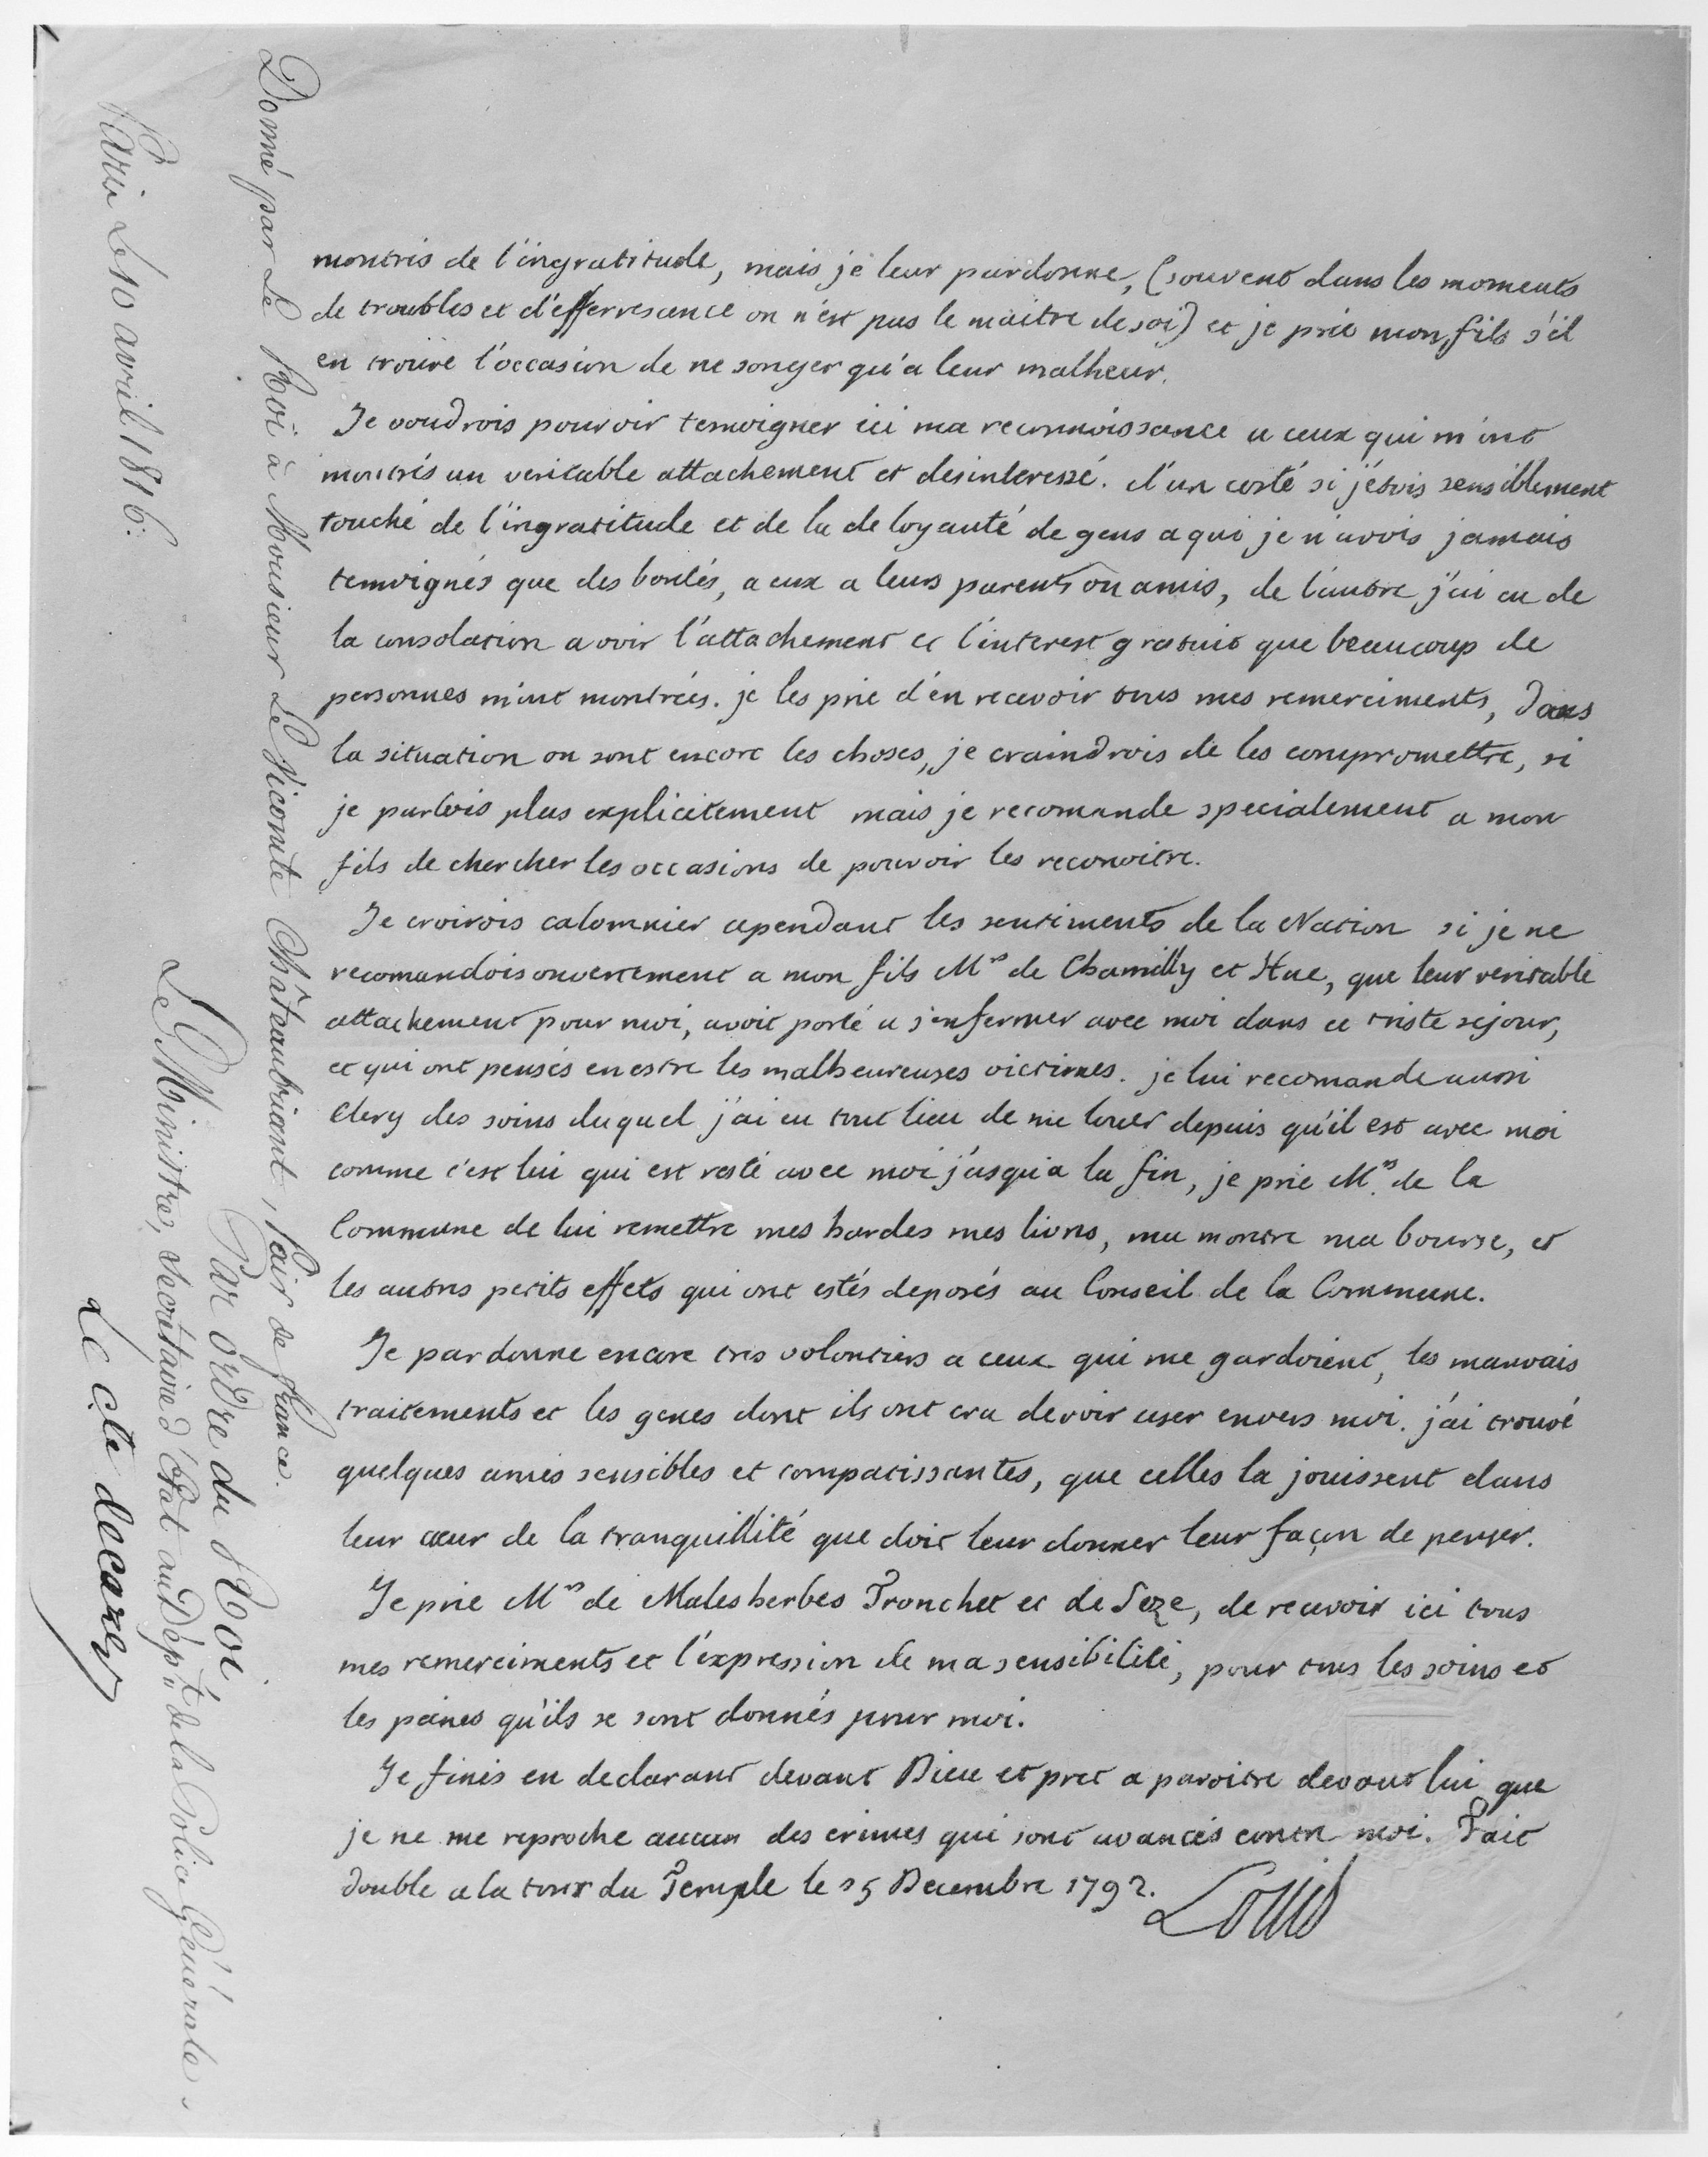 montrés de l'ingratitude, mais je leur pardonne, (souvent dans les moments
de troubles et d'effervescence on n'est pas le maitre de soi) et je prie mon fils s'il
en trouve l'occasion de ne songer qu'a leur malheur.
Je voudrois pouvoir temoigner ici ma reconnoissance a ceux qui m'ont
montrés un veritable attachement et desinteressé. d'un costé si j'etois sensiblement
touché de l'ingratitude et de la deloyauté de gens a qui je n'avois jamais
temoignés que des bontés, a eux a leurs parents ou amis, de l'autre j'ai eu de
la consolation a voir l'attachement et l'interest gratuit que beaucoup de
personnes m'ont montrées. je les prie d'en recevoir tous mes remerciments, dans
la situation ou sont encore les choses, je craindrois de les compromettre, si
je parlois plus explicitement mais je recomande specialement a mon
fils de chercher les occasions de pouvoir les reconoitre.
Je croirois calomnier cependant les sentiments de la Nation si je ne
recomandois ouvertement a mon fils Mrs de Chamilly et Hue, que leur veritable
attachement pour moi, avoit porté a s'enfermer avec moi dans ce triste sejour,
et qui ont pensés en estre les malheureuses victimes. je lui recomande aussi
Clery des soins duquel j'ai eu tout lieu de me louer depuis qu'il est avec moi
comme c'est lui qui est resté avec moi jusqu'a la fin, je prie Mrs de la
Commune de lui remettre mes hardes mes livres, ma montre ma bourse, et
les autres petits effets qui ont estés deposés au Conseil de la Commune.
Je pardonne encore tres volontiers a ceux qui me gardoient, les mauvais
traitements et les genes dont ils ont cru devoir user envers moi. j'ai trouvé
quelques ames sensibles et compatissantes, que celles la jouissent dans
leur cœur de la tranquillité que doit leur donner leur façon de penser.
Je prie Mrs de Malesherbes Tronchet et de Seze, de recevoir ici tous
mes remerciments et l'expression de ma sensibilité, pour tous les soins et
les peines qu'ils se sont donnés pour moi.
Je finis en declarant devant Dieu et pret a paroitre devant lui que
je ne me reproche aucun des crimes qui sont avancés contre moi. Fait
double a la tour du Temple le 25 Decembre 1792.
Louis
Donné par Le Roi à Monsieur Le Vicomte Châteaubriant, Pair de france.
Paris Le 10 avril 1816.
Par ordre du Roi
Le Ministre, Secrétaire d'État au Dépt de la Police Générale
Le Cte decazes